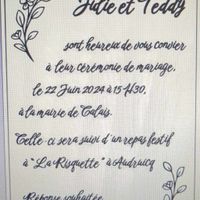 Julie et Teddy
sont heureux de vous convier
à leur cérémonie de mariage,
le 22 Juin 2024 à 15h30,
à la mairie de Calais.
Celle-ci sera suivi d'un repas festif
à "La Risquette" à Audruicq
Réponse souhaitée